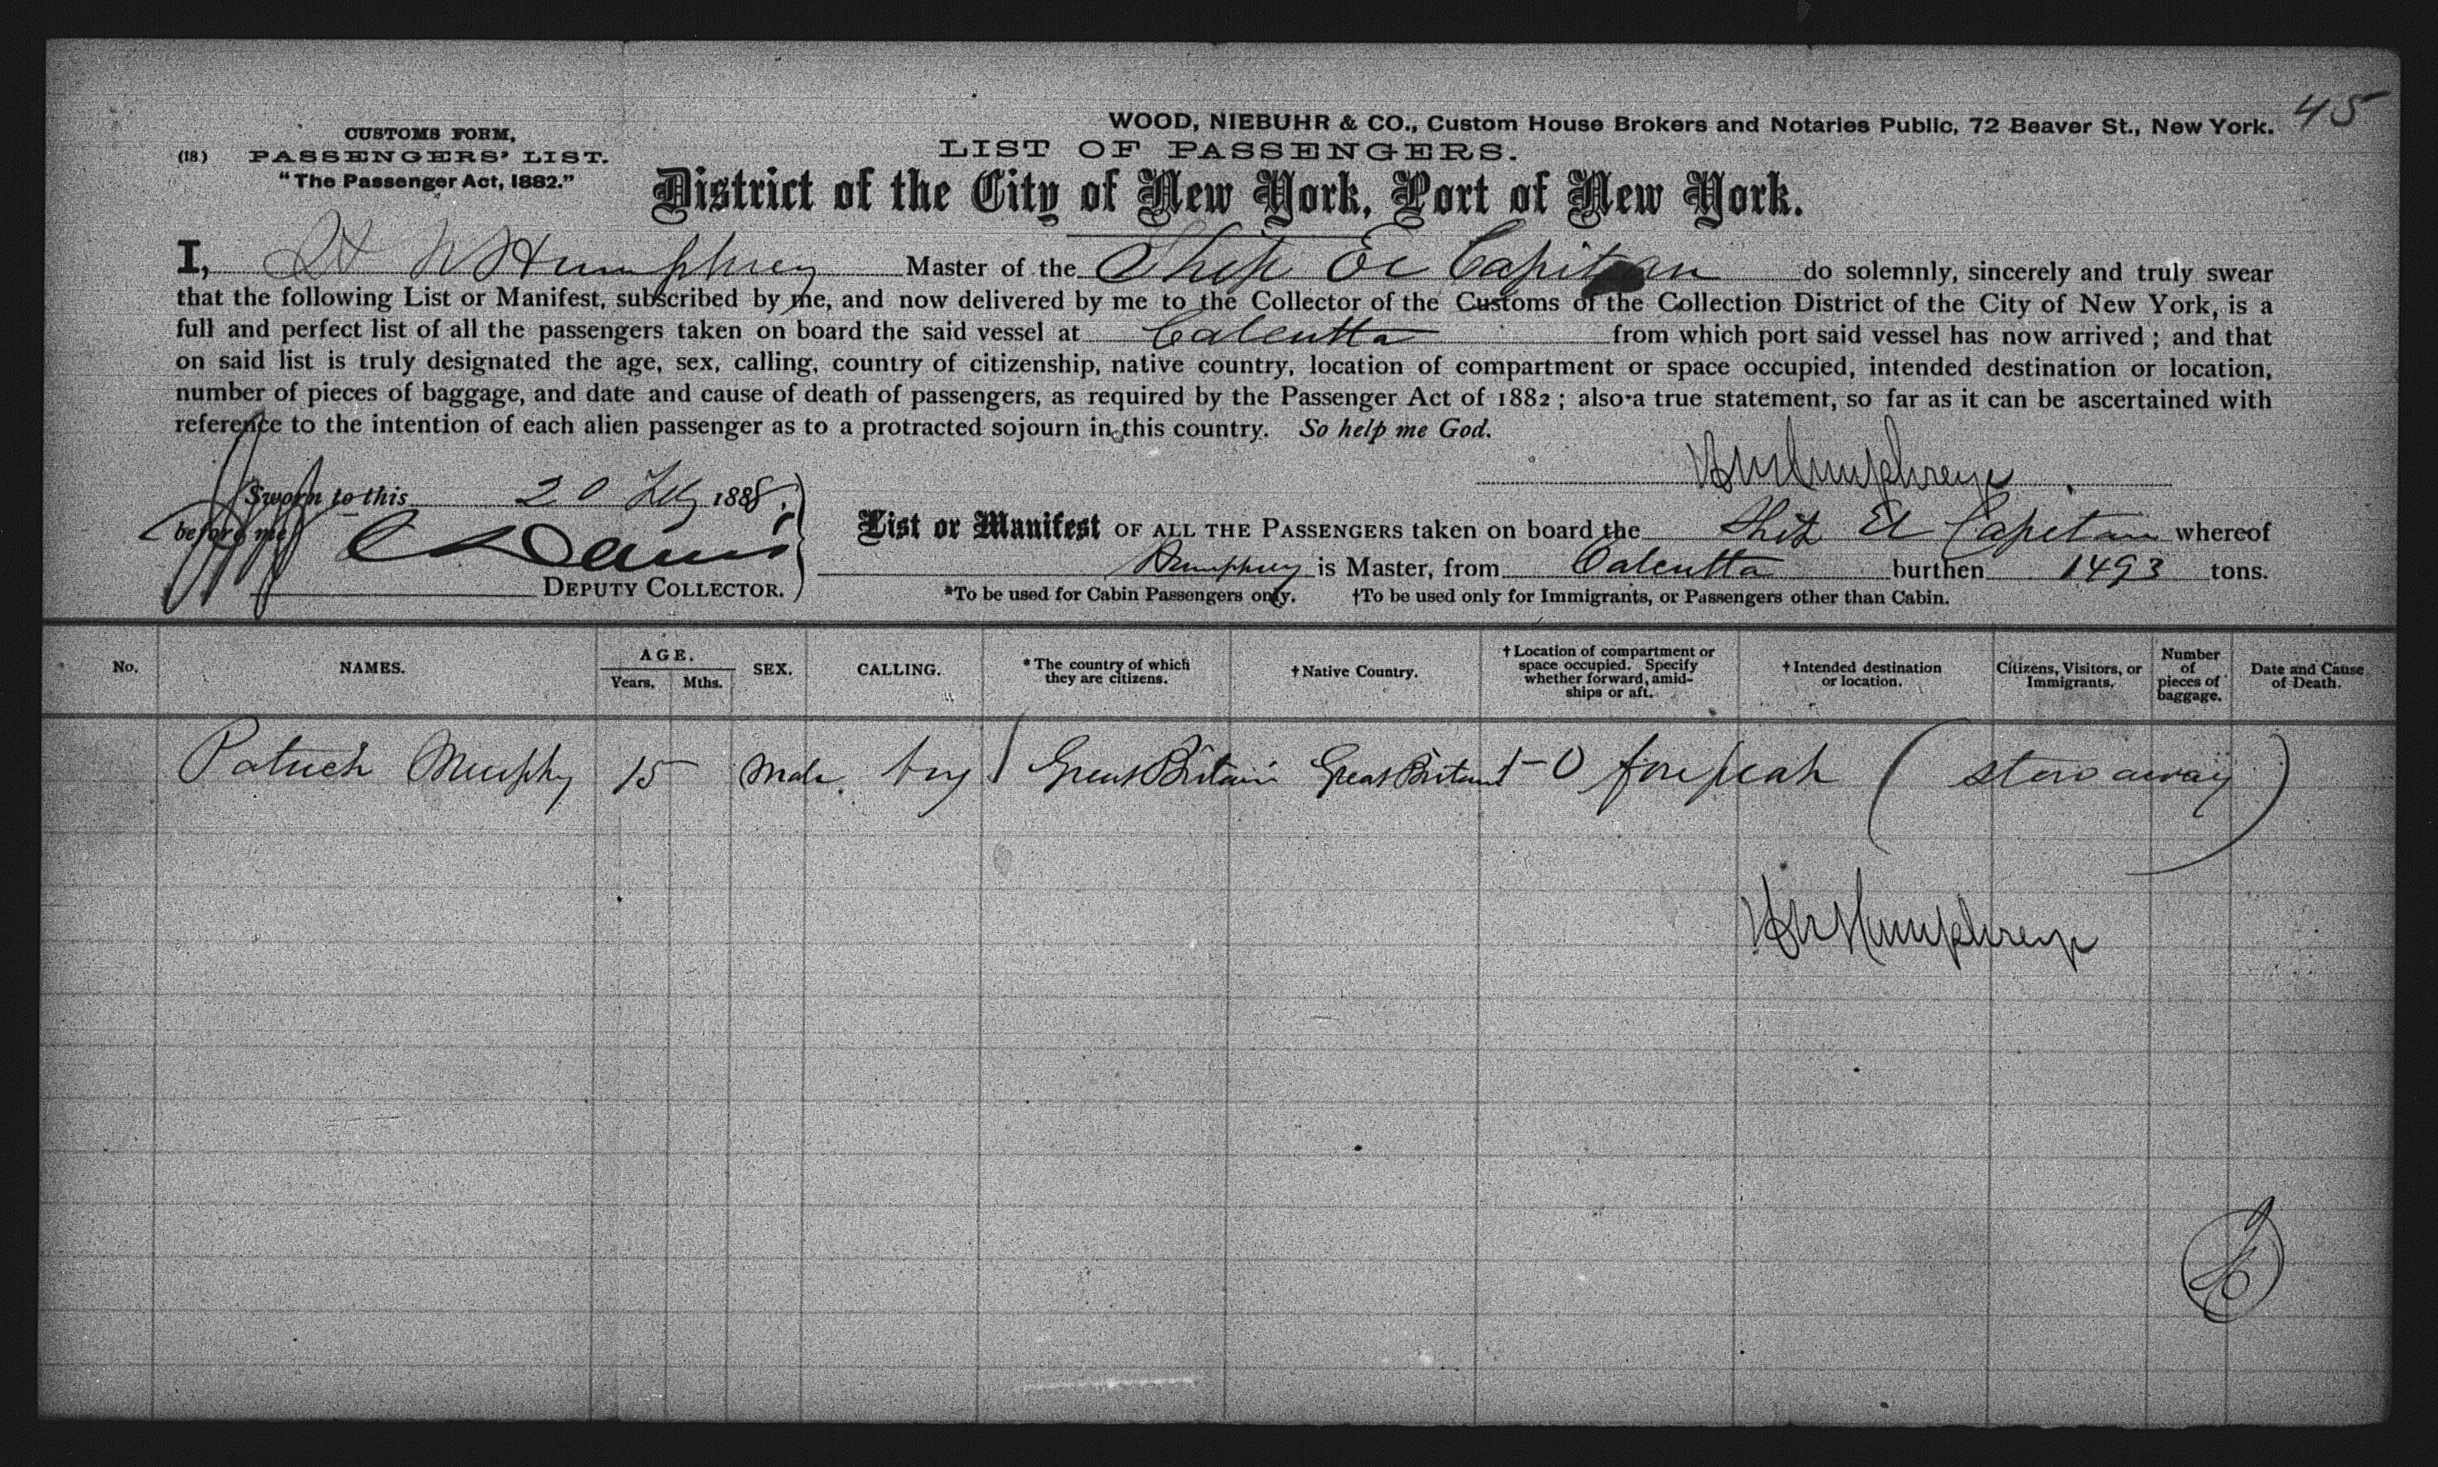 45
WOOD, NIEBUHR & CO., Custom House Brokers and Notaries Public, 72 Beaver St., New York.
CUSTOMS FORM,
(18) PASSENGERS' LIST.
"The Passenger Act, 1882."
LIST OF PASSENGERS.
District of the City of New York, Port of New York.
I, Humphrey Master of the Ship El Capitan do solemnly, sincerely and truly swear
that the following List or Manifest, subscribed by me, and now delivered by me to the Collector of the Customs of the Collection District of the City of New York, is a
full and perfect list of all the passengers taken on board the said vessel at Calcutta from which port said vessel has now arrived; and that
on said list is truly designated the age, sex, calling, country of citizenship, native country, location of compartment or space occupied, intended destination or location,
number of pieces of baggage, and date and cause of death of passengers, as required by the Passenger Act of 1882; also a true statement, so far as it can be ascertained with
reference to the intention of each alien passenger as to a protracted sojourn in this country. So help me God.
Humphreys
Sworn to this 20 Feby 1888.
before me
DEPUTY COLLECTOR.
List or Manifest OF ALL THE PASSENGERS taken on board the Ship El Capitan whereof
Humphrey is Master, from Calcutta burthen 1493 tons.
*To be used for Cabin Passengers only. †To be used only for Immigrants, or Passengers other than Cabin.
No. NAMES. AGE. Years. Mths. SEX. CALLING. *The country of which they are citizens. †Native Country. †Location of compartment or space occupied. Specify whether forward, amidships or aft. †Intended destination or location. Citizens, Visitors, or Immigrants. Number of pieces of baggage. Date and Cause of Death.
Patrick Murphy 15 Male boy Great Britain Great Britain forepeak (stow away)
Humphreys